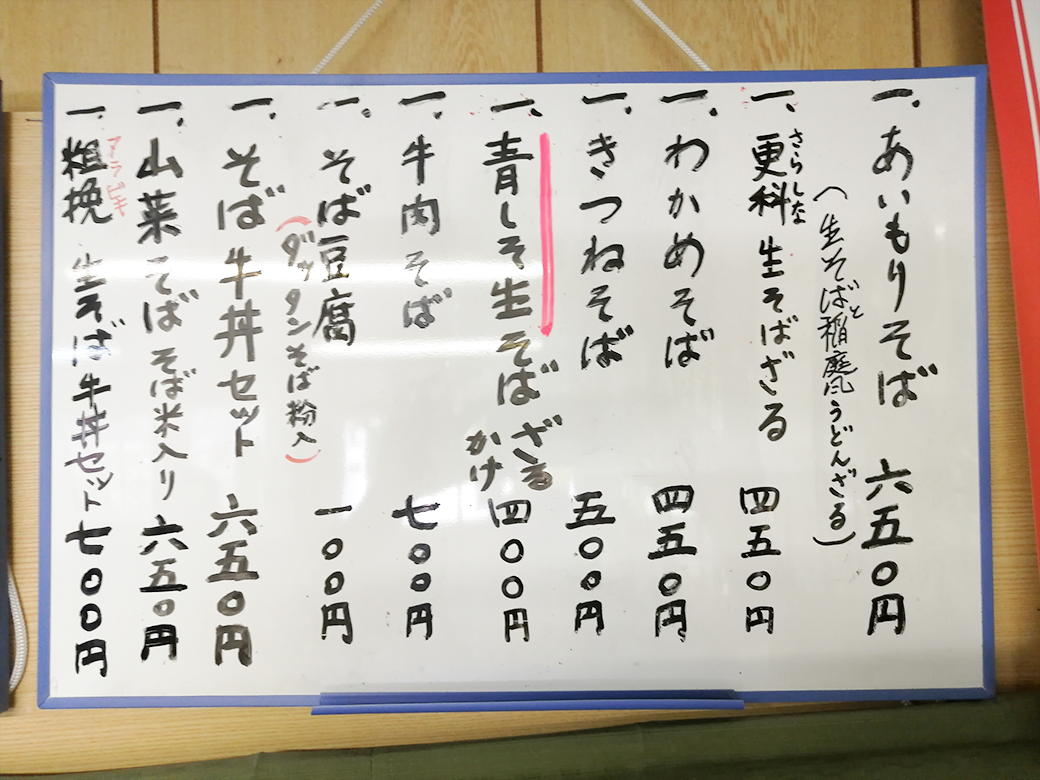 一、あいもりそば 六五〇円
(生そばと稲庭風うどんざる)
一、更科生そばざる 四五〇円
さらしな
一、わかめそば 四五〇円
一、きつねそば 五〇〇円
一、青しそ生そば ざる かけ 四〇〇円
一、牛肉そば 七〇〇円
一、そば豆腐 一〇〇円
(ダッタンそば粉入)
一、そば牛丼セット 六五〇円
一、山菜そば そば米入り 六五〇円
アラビキ
一、粗挽 生そば牛丼セット 七〇〇円